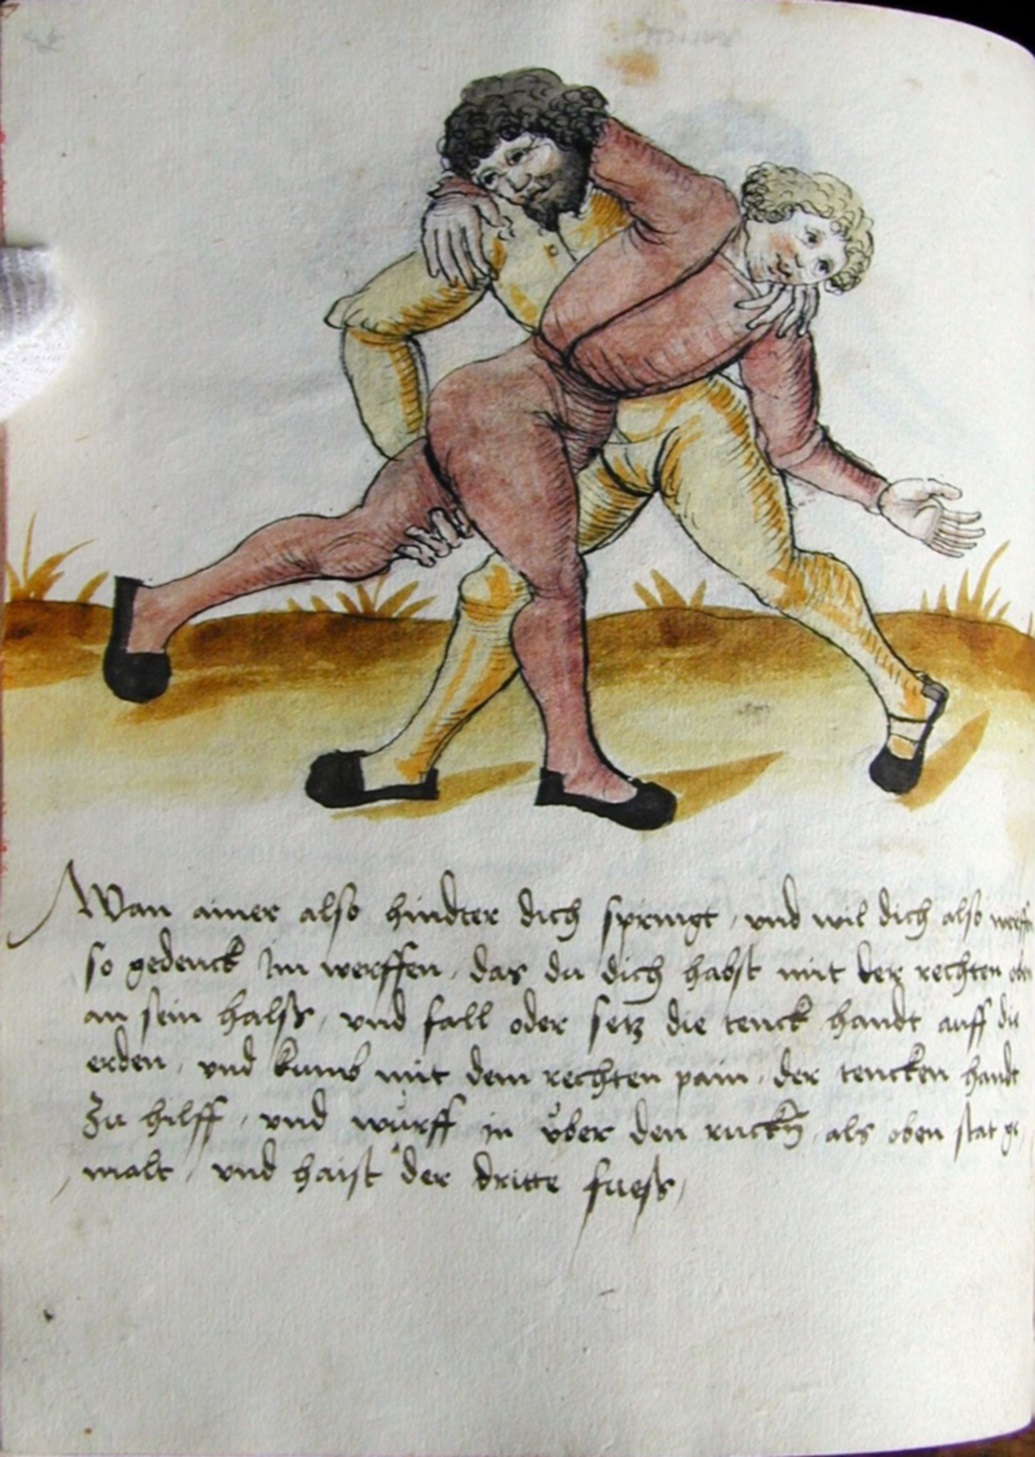 Wan ainer also hindter dich springt, vnd wil dich also
so gedenck Im werffen, das du dich habst mit der rechten
an sein halss, vnd fall oder setz die tenck handt auff die
erden, vnd kumb mit dem rechten pain, der tencken handt
zu hilff, vnd würff in vber den ruckn, als oben stat ge
malt, vnd haist der dritte fuess,